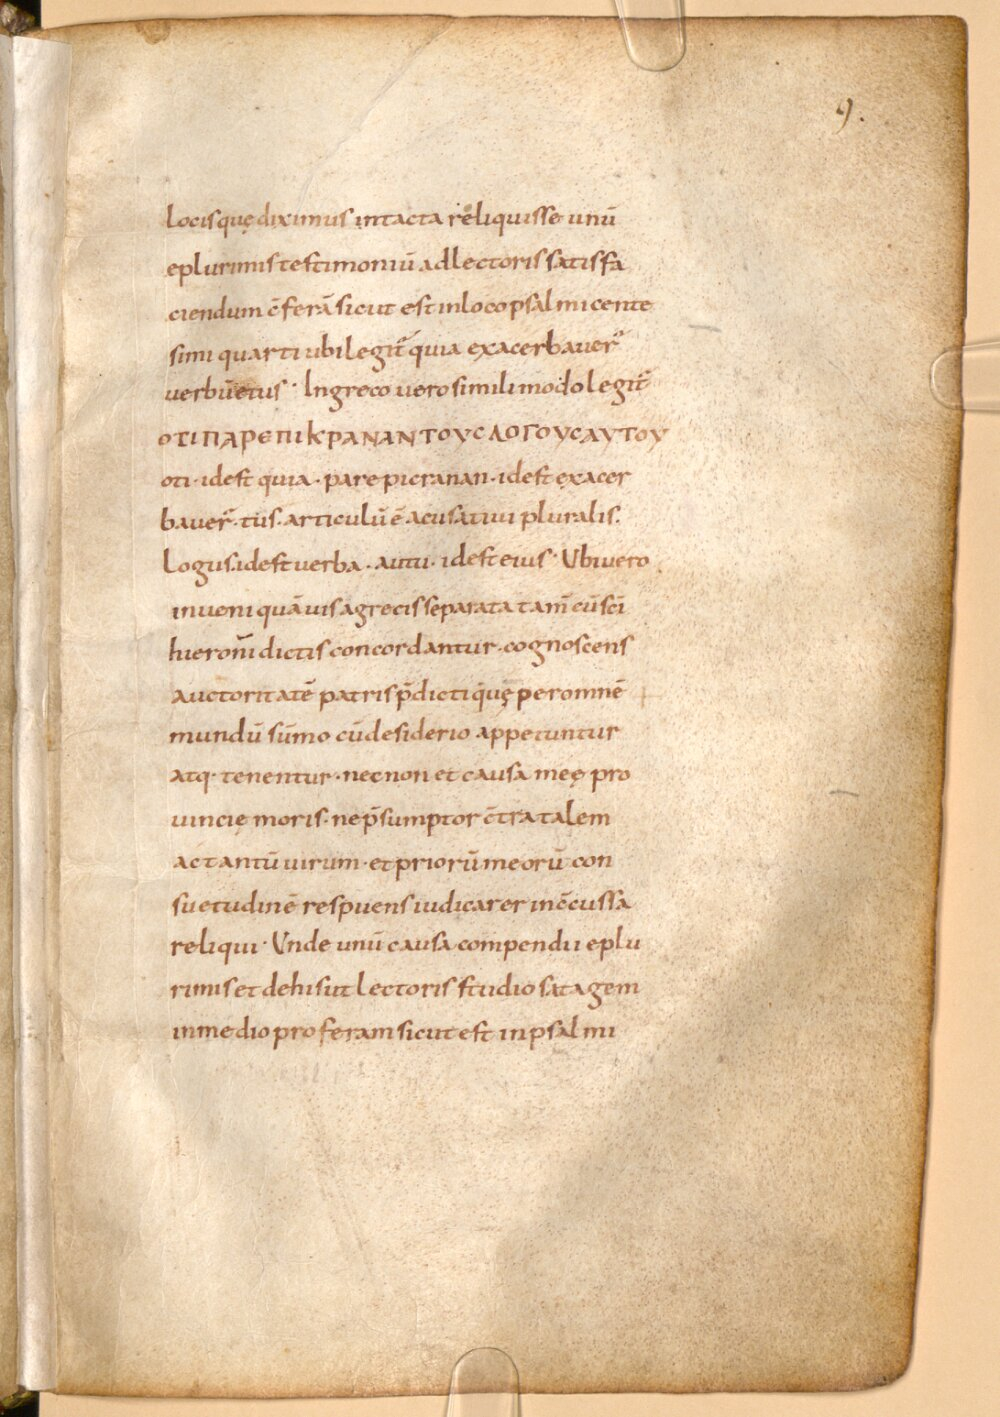 9.
locis quę diximus intacta reliquisse unū
e plurimis testimoniū ad lectoris satisfa
ciendum c̄ferā sicut est in loco psalmi cente
simi quarti ubi legit̄ quia exacerbauer̄
verbū eius · In greco uero simili modo legit̄
ΟΤΙ ΠΑΡΕΠΙΚΡΑΝΑΝ ΤΟΥC ΛΟΓΟΥC ΑΥΤΟΥ
oti · id est quia · parepicranan · id est exacer
bauer̄ · tus · articulū ē acusatiui pluralis ·
Logus · id est uerba · autu · id est eius · Ubi uero
inueni quāuis a grecis separata tam̄ cū sc̄i
hieronimi dictis concordantur · cognoscens
auctoritatē patris p̄dicti quę per omnē
mundū sūmo cū desiderio appetuntur
atq· tenentur · necnon et causa meę pro
uincię moris · ne p̄sumptor c̄tra talem
ac tantū uirum · et priorū meorū con
suetudinē respuens iudicarer inc̄cussa
reliqui · Unde unū causa compendii e plu
rimis et de his ut lectoris studio satagem
in medio proferam sicut est in psalmi